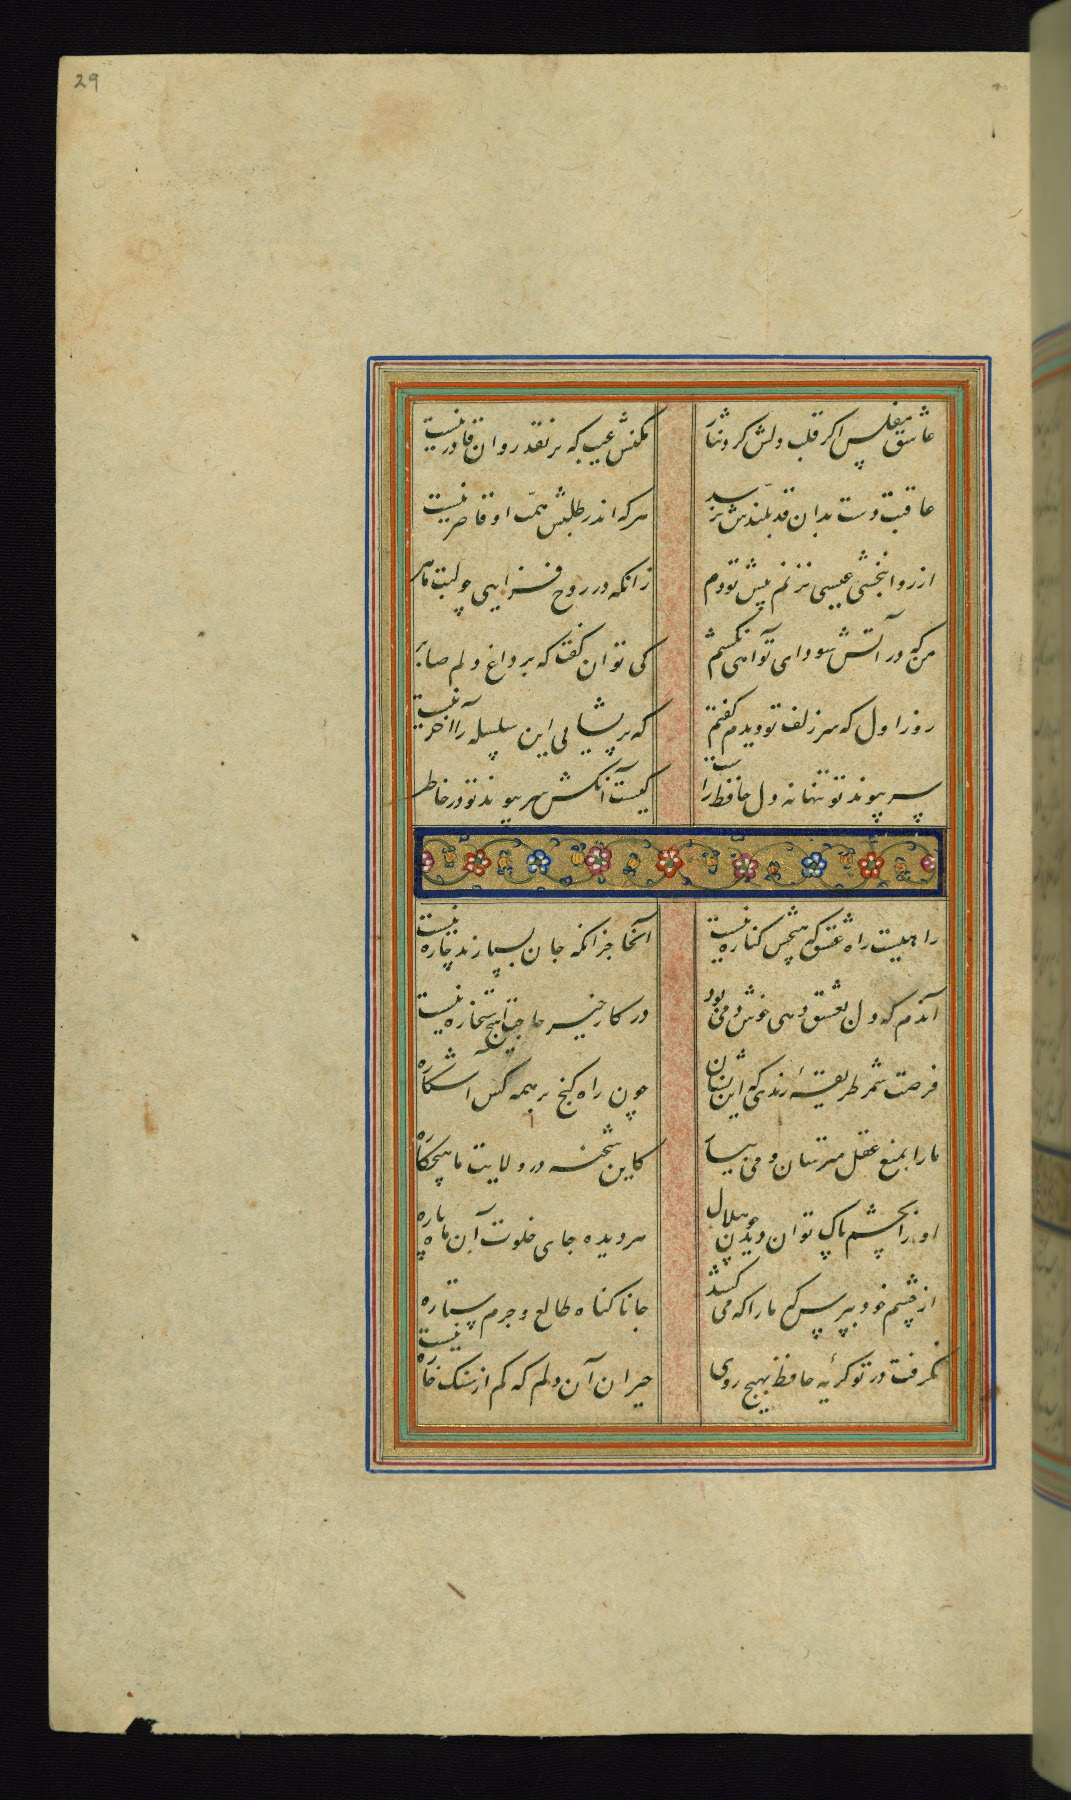 29
عاشق مفلس اگر قلب دلش کرد نثار
مکنش عیب که بر نقد روان قادر نیست
عاقبت دست بدان قد بلندش برسد
هرکه اندر طلبش همّت او قاصر نیست
از روانبخشی عیسی نزنم پیش تو دم
زانکه در روح فزایی چو لبت ماهر
من که در آتش سودای تو آهی نکشم
کی توان گفت که بر داغ دلم صابر
روز اول که سر زلف تو دیدم گفتم
که پریشانی این سلسله را آخر نیست
سر پیوند تو تنها نه دل حافظ راست
کیست آنکش سر پیوند تو در خاطر
راهیست راه عشق که هیچش کناره نیست
آنجا جز آنکه جان بسپارند چاره نیست
آندم که دل بعشق دهی خوش دمی بود
در کار خیر حاجت هیچ استخاره نیست
فرصت شمر طریقهٔ رندی که این نشان
چون راه گنج بر همه کس آشکاره
ما را بمنع عقل مترسان و می بیار
کاین شحنه در ولایت ما هیچکاره
او را بچشم پاک توان دید چون هلال
هر دیده جای خلوت آن ماه پاره
از چشم خود بپرس که ما را که می کشد
جانا گناه طالع و جرم ستاره
نگرفت در تو گریهٔ حافظ بهیچ روی
حیران آن دلم که کم از سنگ خاره نیست